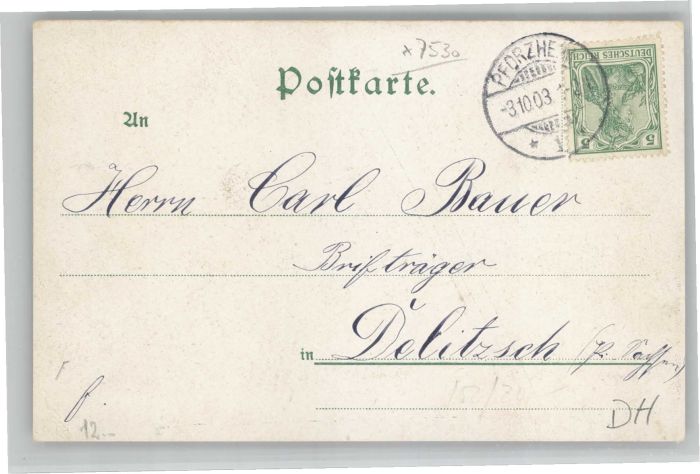 *7530
Postkarte.
PFORZHE
-3.10.03
DEUTSCHES REICH
5 5
An
Herrn Carl Bauer
Brifträger
in Delitzsch (P. Sachsen)
f.
12.-
DH